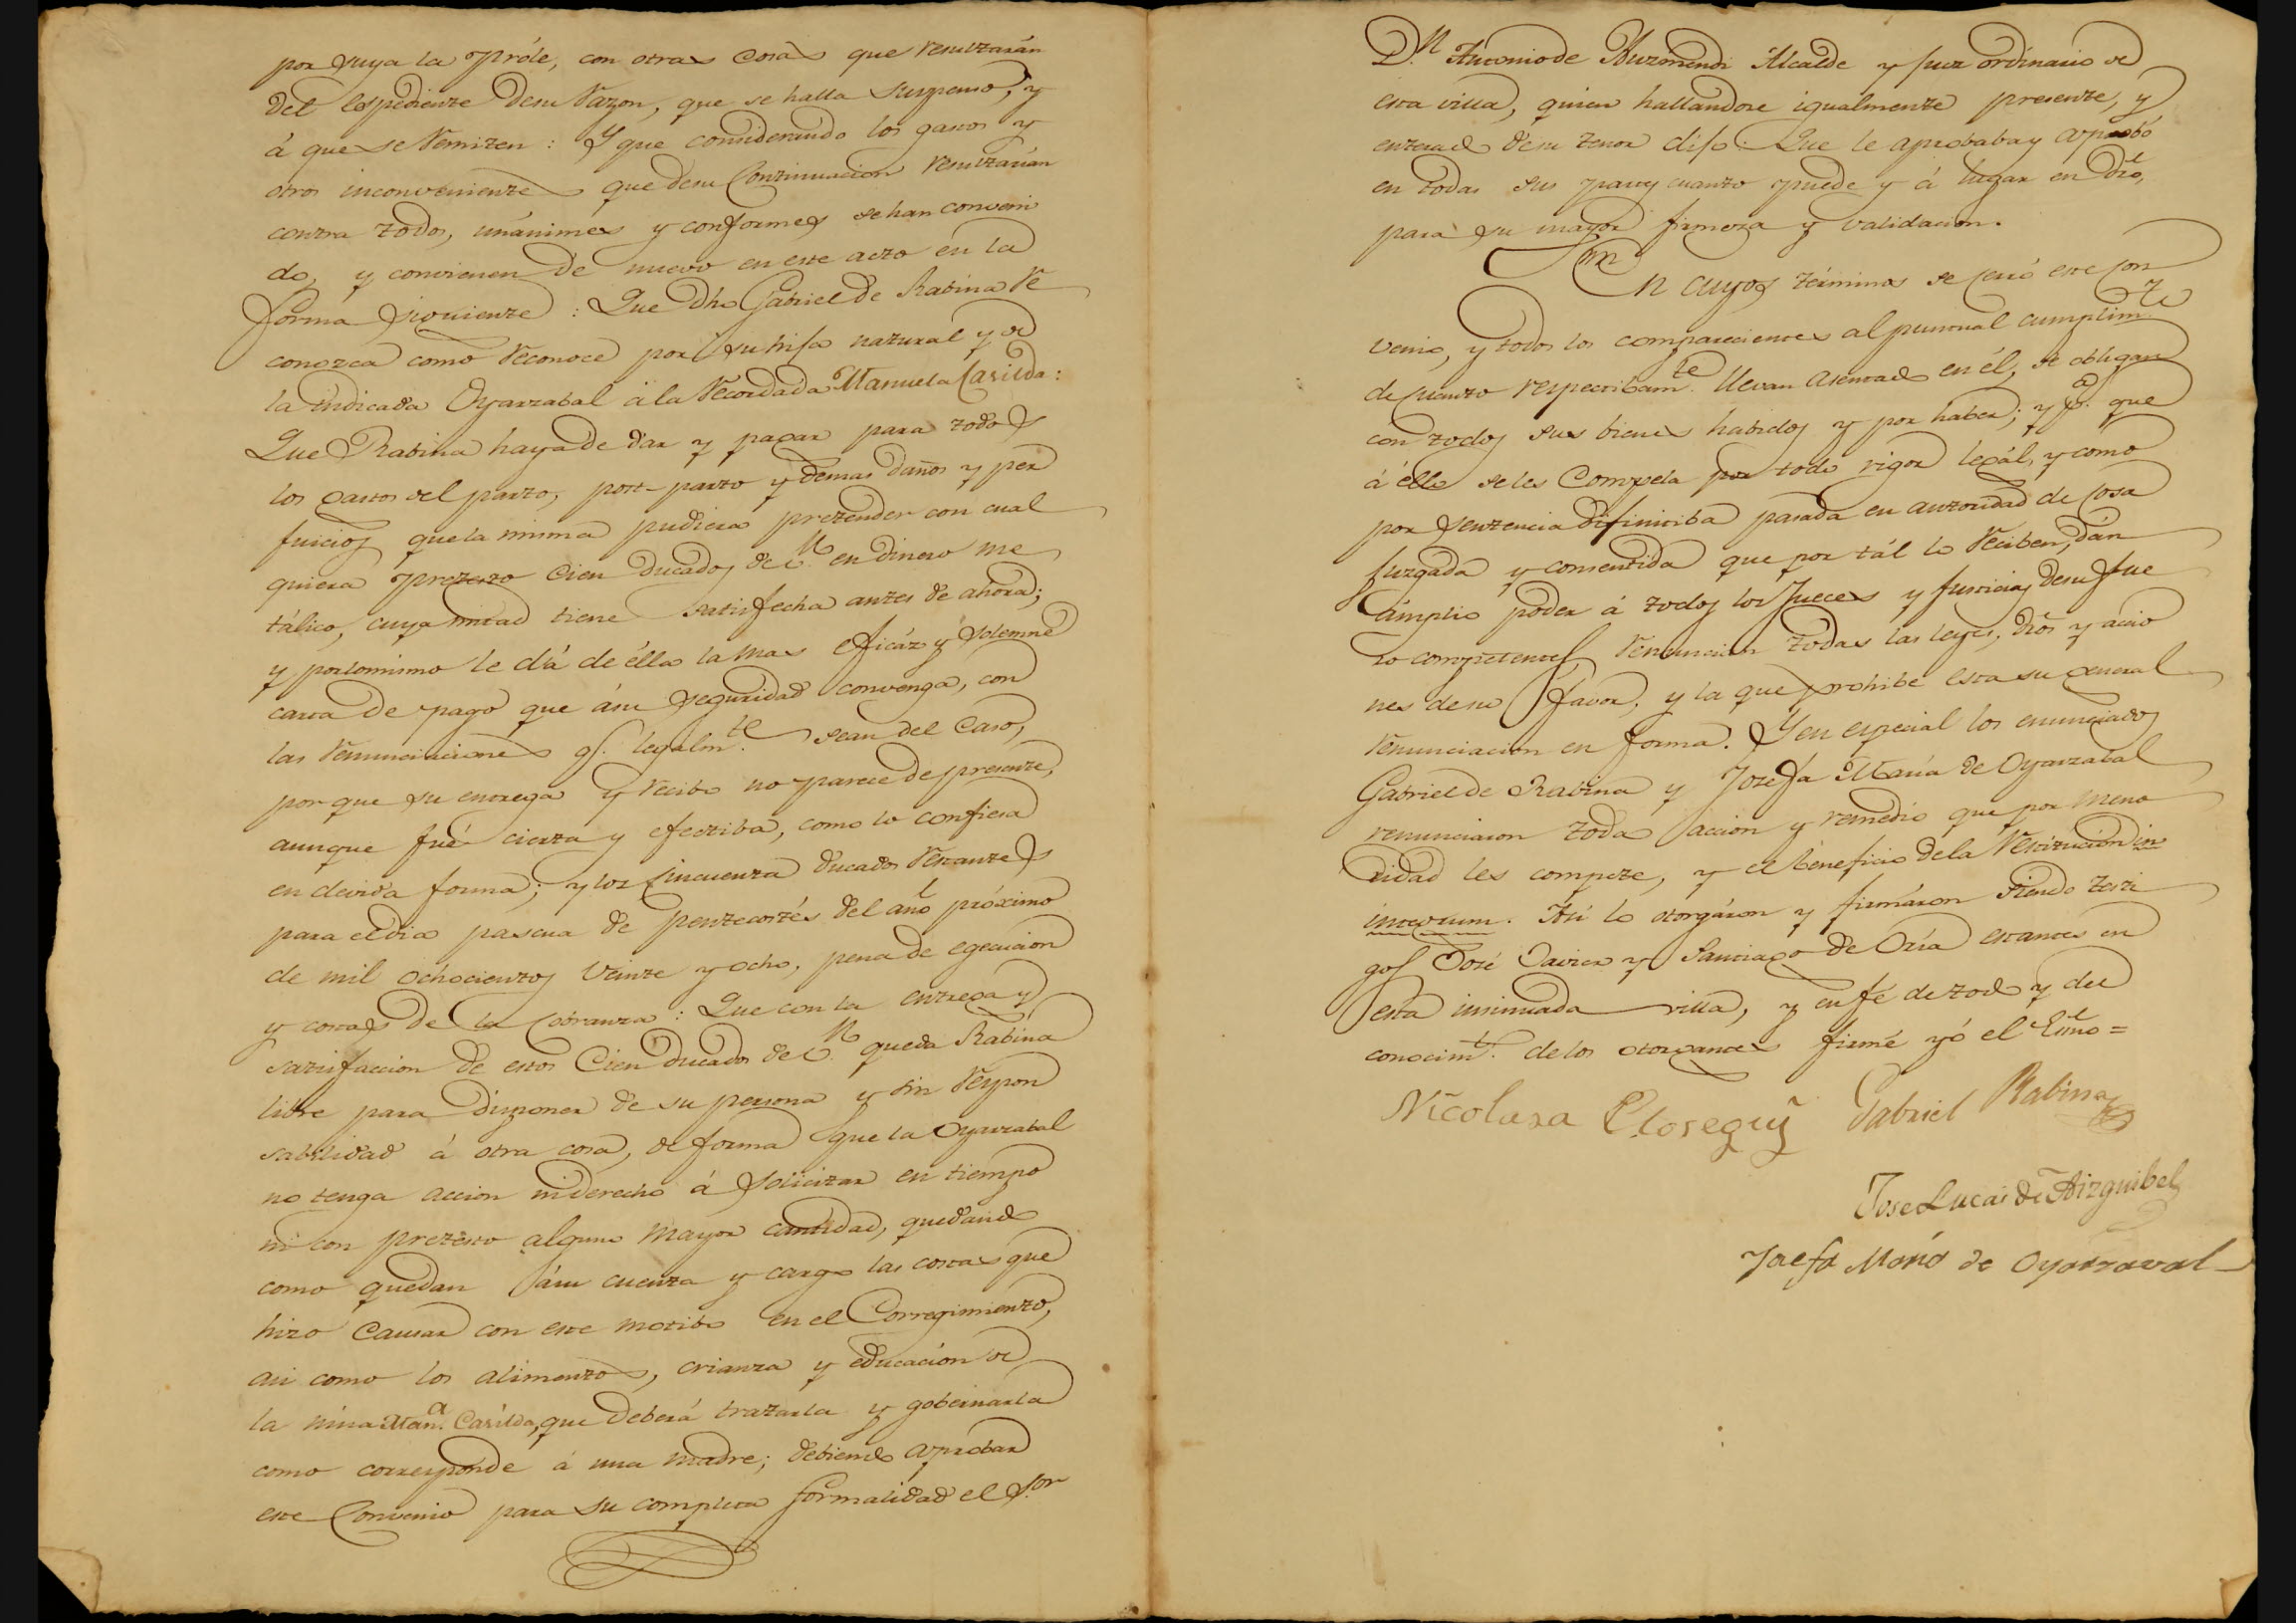 por suya la próle, con otras cosas que resultarán
del Espediente desu razon, que se halla suspenso, y
á que se remiten : Y que considerando los gastos y
otros inconvenientes que desu Continuacion resultarian
contra todos, unánimes y conformes sehan conveni
do, y convienen de nuevo en este acto en la
forma siguiente : Que dho Gabriel de Rabina re
conozca como reconoce por su hija natural y de
la indicada Oyarzabal á la recordada Manuela Casilda :
Que Rabina haya de dar y pagar para todos
los gastos del parto, post-parto y demas daños y per
juicios que la misma pudiera pretender con cual
quiera pretesto Cien ducados de v.n en dinero me
tálico, cuya mitad tiene satisfecha antes de ahora;
y porlomismo le dá de élla la mas eficáz y solemne
carta de pago que ásu seguridad convenga, con
las renunciaciones q.e legalm.te sean del Caso,
por que su entrega y recibo no parece de presente,
aunque fué cierta y efectiba, como lo confiesa
en devida forma; y los Cincuenta ducados restantes
para el dia pascua de pentecostés del año próximo
de mil ochocientos veinte y ocho, pena de egecucion
y costas de la Cobranza : Que con la entrega y
satisfaccion de estos Cien ducados de v.n queda Rabina
libre para disponer de su persona y sin respon
sabilidad á otra cosa, de forma que la Oyarzabal
no tenga accion niderecho á solicitar en tiempo
ni con pretesto alguno mayor cantidad, quedando
como quedan ásu cuenta y cargo las costas que
hizo Causar con este motibo en el Corregimiento,
asi como los alimentos, crianza y educacion de
la niña Man.a Casilda, que deberá tratarla y gobernarla
como corresponde á una madre; debiendo aprobar
este Convenio para su completa formalidad el S.or
D.n Antonio de Yturzmendi Alcalde y Juez ordinario de
esta villa, quien hallandose igualmente presente, y
enterado desu tenor dijo : Que le aprobaba y aprobó
en todas sus partes cuanto puede y á lugar en dro,
para su mayor firmeza y validacion.
En cuyos términos se cerró este Con
venio, y todos los comparecientes al puntual cumplim.to
de cuanto respectibam.te llevan asentado en él, se obligan
con todos sus bienes habidos y por haber; y p.a que
á éllo seles Compela por todo rigor legál, y como
por sentencia difinitiba pasada en autoridad de Cosa
Juzgada y consentida que por tál lo reciben, dán
ámplio poder á todos los Jueces y Justicias desu fue
ro competentes renuncian todas las leyes, dros y accio
nes de su favor, y la que prohibe esta su general
renunciacion en forma. Y en especial los enunciados
Gabriel de Rabina y Josefa María de Oyarzabal
renunciaron toda accion y remedio que por meno
ridad les compete, y el beneficio dela restitucion in
integrum. Asi lo otorgáron y firmáron siendo testi
gos José Javier y Santiago de Oria estantes en
esta insinuada villa, y en fé de todo y del
conocim.to de los otorgantes firmé yó el Essno =
Nicolasa Elosegui Gabriel Rabina
Jose Lucas de Aizquibel
Josefa Maria de Oyarzaval